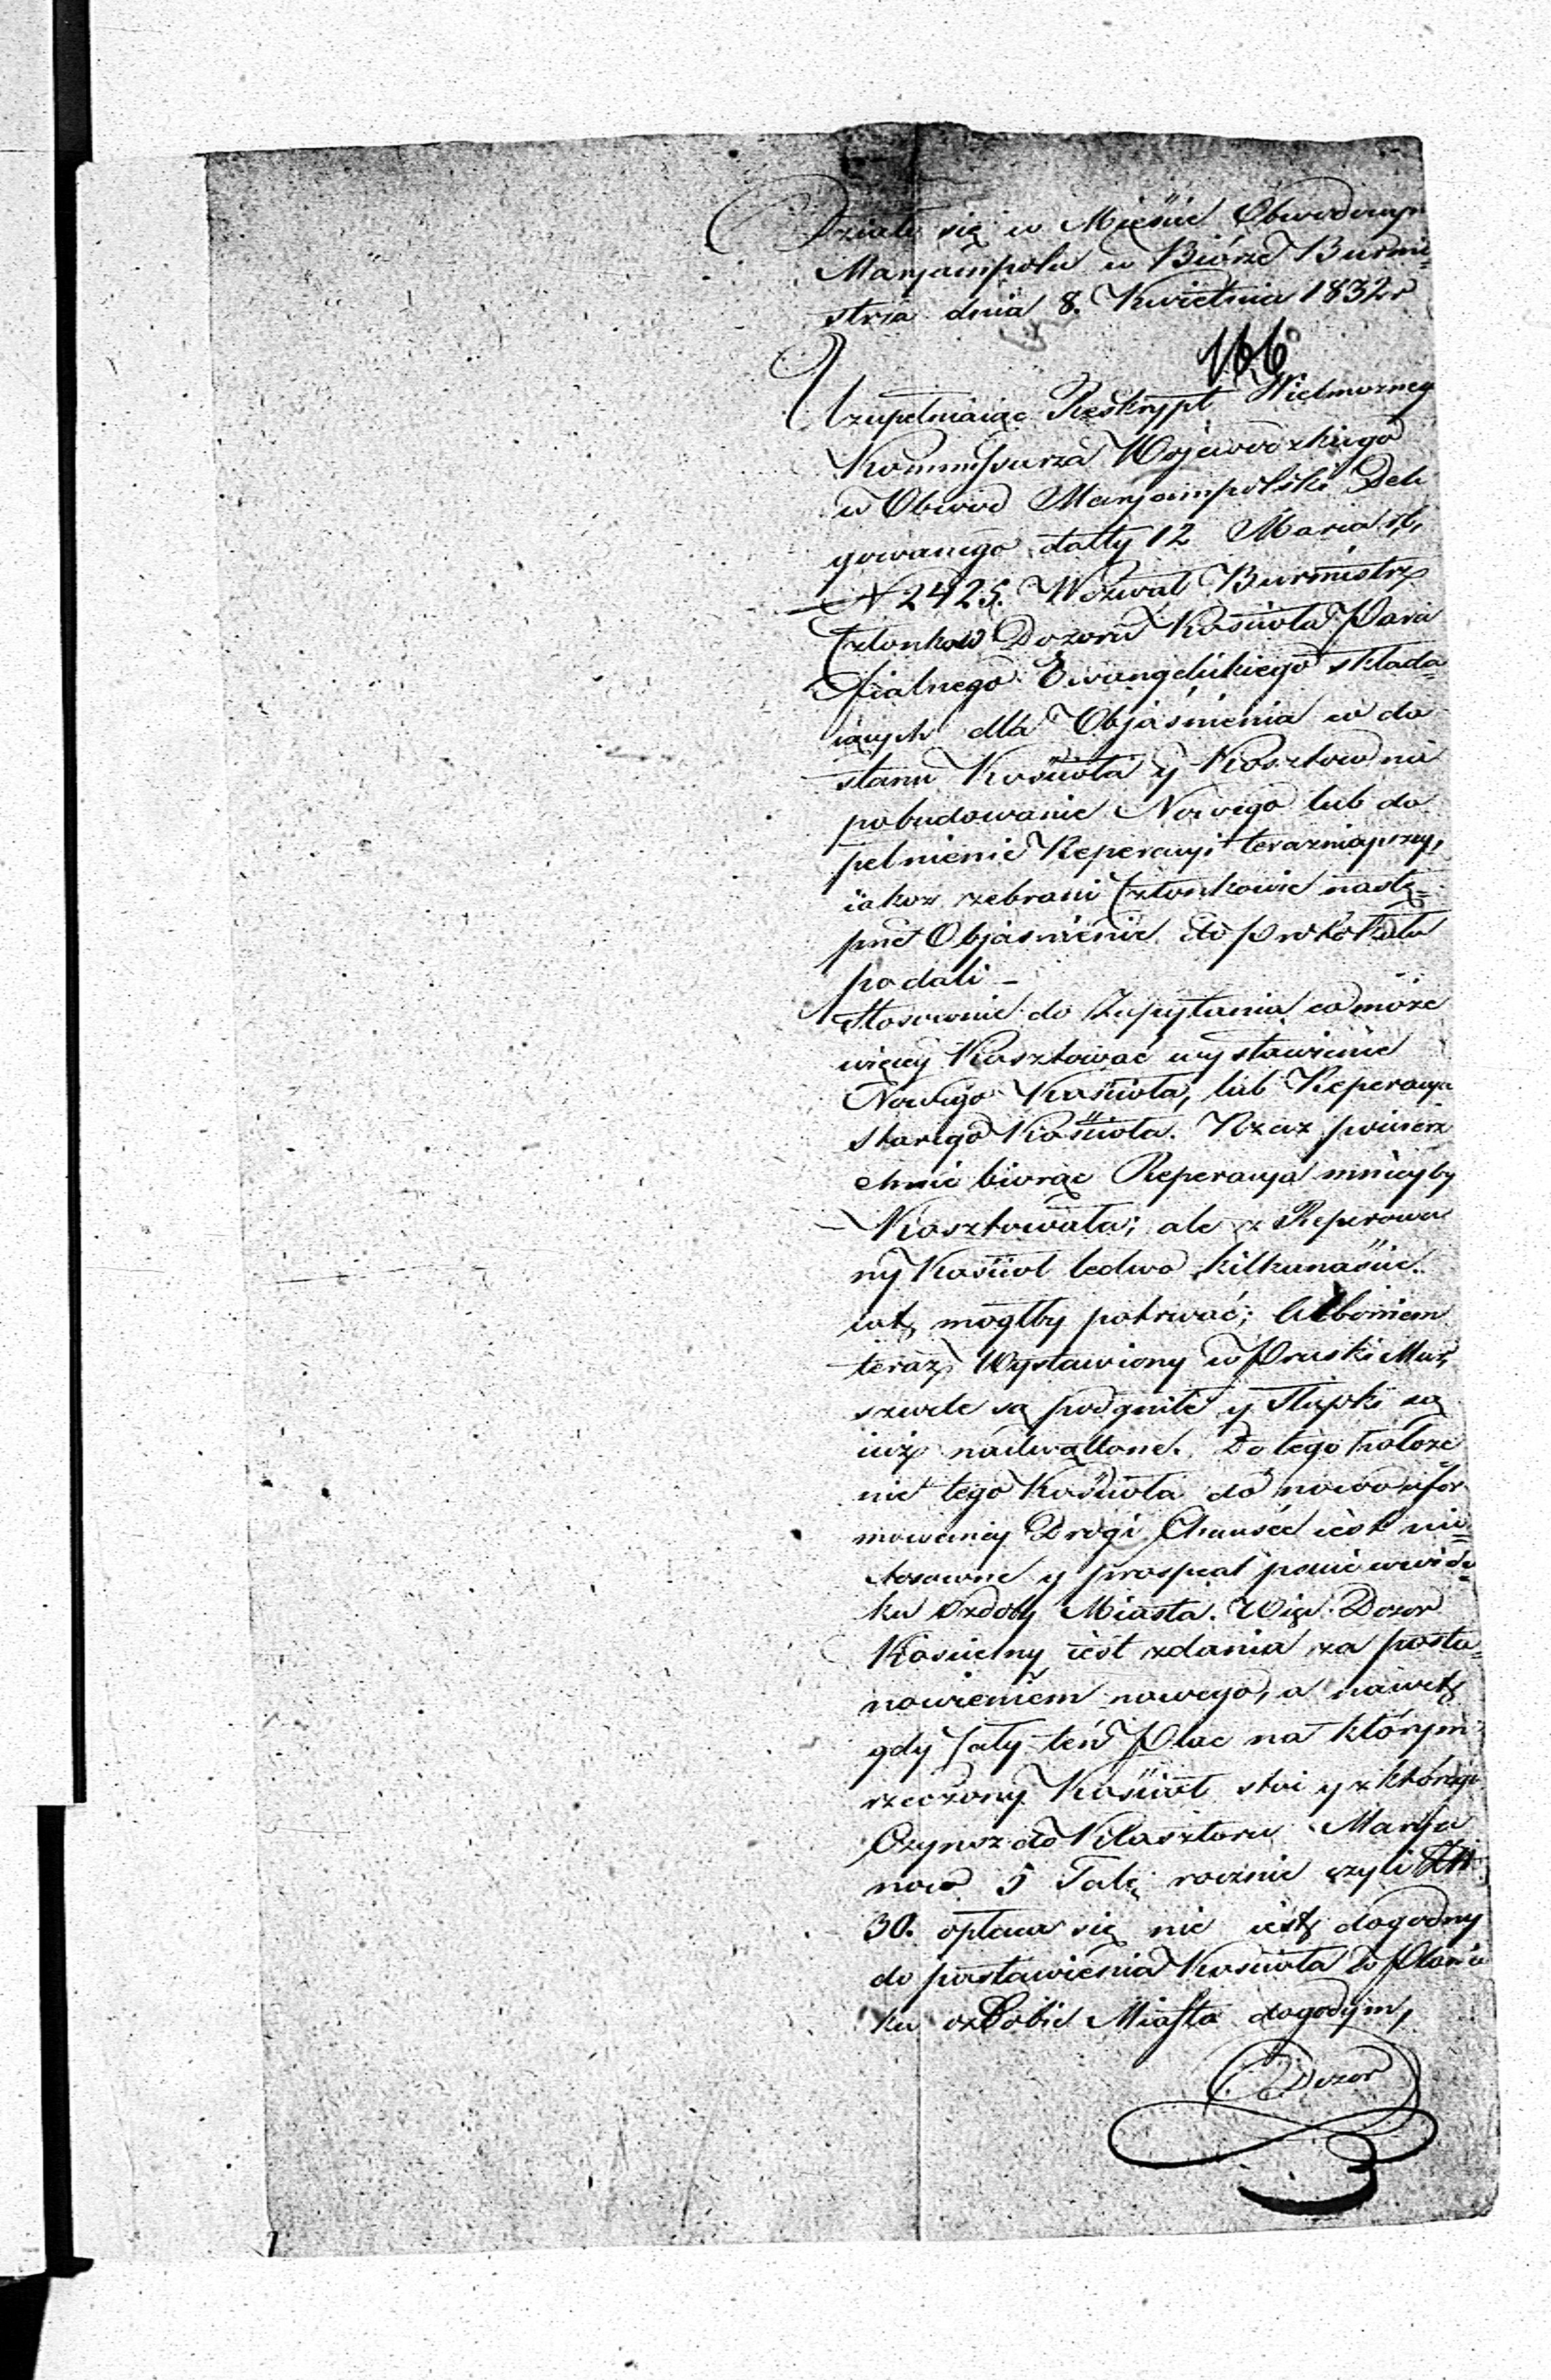 Działo się w Mieście Obwodowym
Maryampolu w Biórze Burmi=
strza dnia 8. Kwietnia 1832 r
166
Uzupełniaiąc Reskrypt Wielmożnego
Kommissarza Wojewódzkiego
w Obwód Maryampolski Dele
gowanego datty 12 Marca
N 2425. Wezwał Burmistrz
Członków Dozoru Kościoła Para
fialnego Ewangelickiego składa=
iących dla Objaśnienia w do
stanu Kościoła y Kosztow na
pobudowanie Nowego lub do
pełnienie Reperacyi terazniejszey,
iakoż zebrani Członkowie nastę=
pne Objasnienie do Protokułu
podali -
Stosownie do Zapytania co może
więcey Kosztować wystawienie
Nowego Kościoła, lub Reperacya
starego Kościoła. Rzecz powierz
chnie biorąc Reperacya mnieyby
Kosztowała; ale z Reperowa
ny Kościoł ledwo kilkanaście
lat mogłby potrwać; Albowiem
teraz Wystawiony w Pruski Mur,
szwele są podgnite y Słupki są
iuż nadwątlone. Do tego Położe
nie tego Kościoła do nowo ufor
mowaney Drogi Chaussée iest nie=
stosowne y prospect
ku Ozdoby Miasta. Więc Dozor
Koscielny iest zdania za posta=
nowieniem nowego, a nawet
gdy Cały ten Plac na którym
rzeczony Kościoł stoi y z którego
Czynsz do Klasztoru Marya
now 5 Tal rocznie czyli Zł
30. opłaca się nie iest dogodny
do postawienia Kościoła w Planie
ku ozdobie Miasta dogodnym,
Dozor